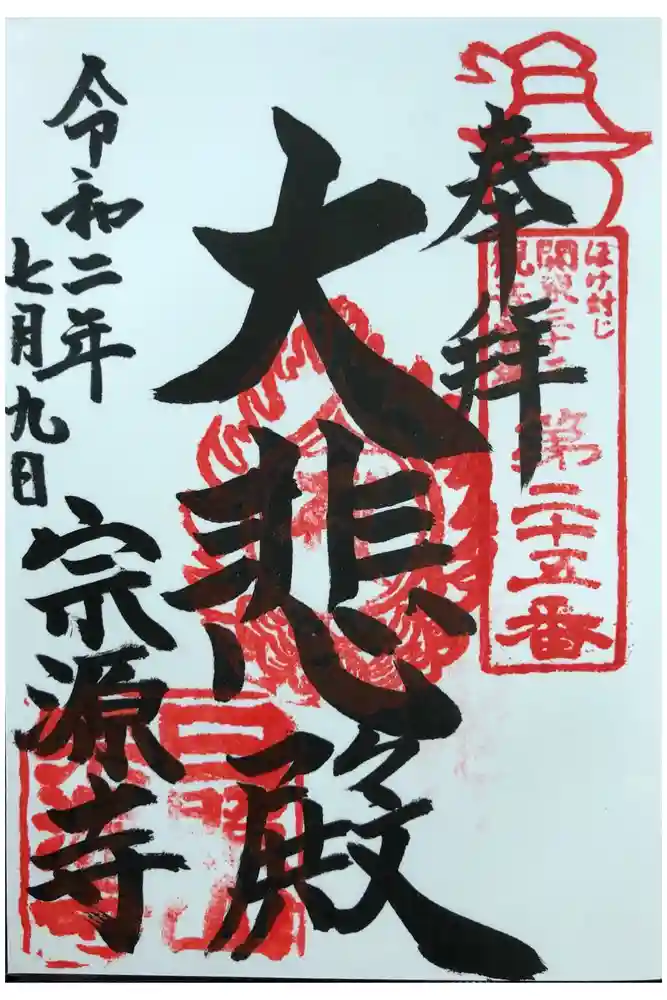 奉拝
ほけ封じ
関東三十三
観音
第二十五番
大悲殿
令和二年
七月九日
宗源寺